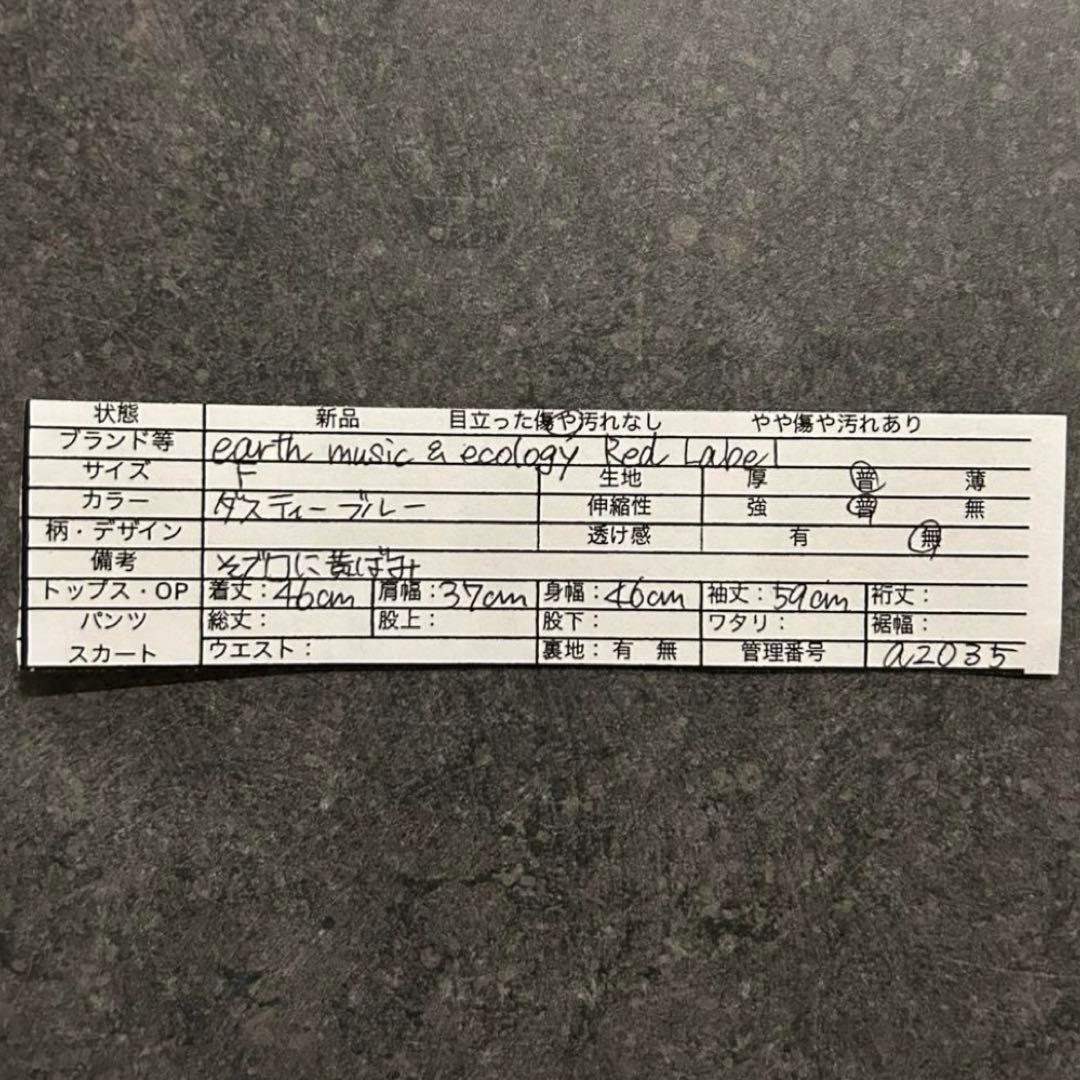 状態 新品 目立った傷や汚れなし やや傷や汚れあり
ブランド等 earth music & ecology Red Label
サイズ F 生地 厚 普 薄
カラー ダスティーブルー 伸縮性 強 普 無
柄・デザイン 透け感 有 無
備考 そで口に黄ばみ
トップス・OP 着丈：46cm 肩幅：37cm 身幅：46cm 袖丈：59cm 裄丈：
パンツ 総丈： 股上： 股下： ワタリ： 裾幅：
スカート ウエスト： 裏地：有 無 管理番号 a2035